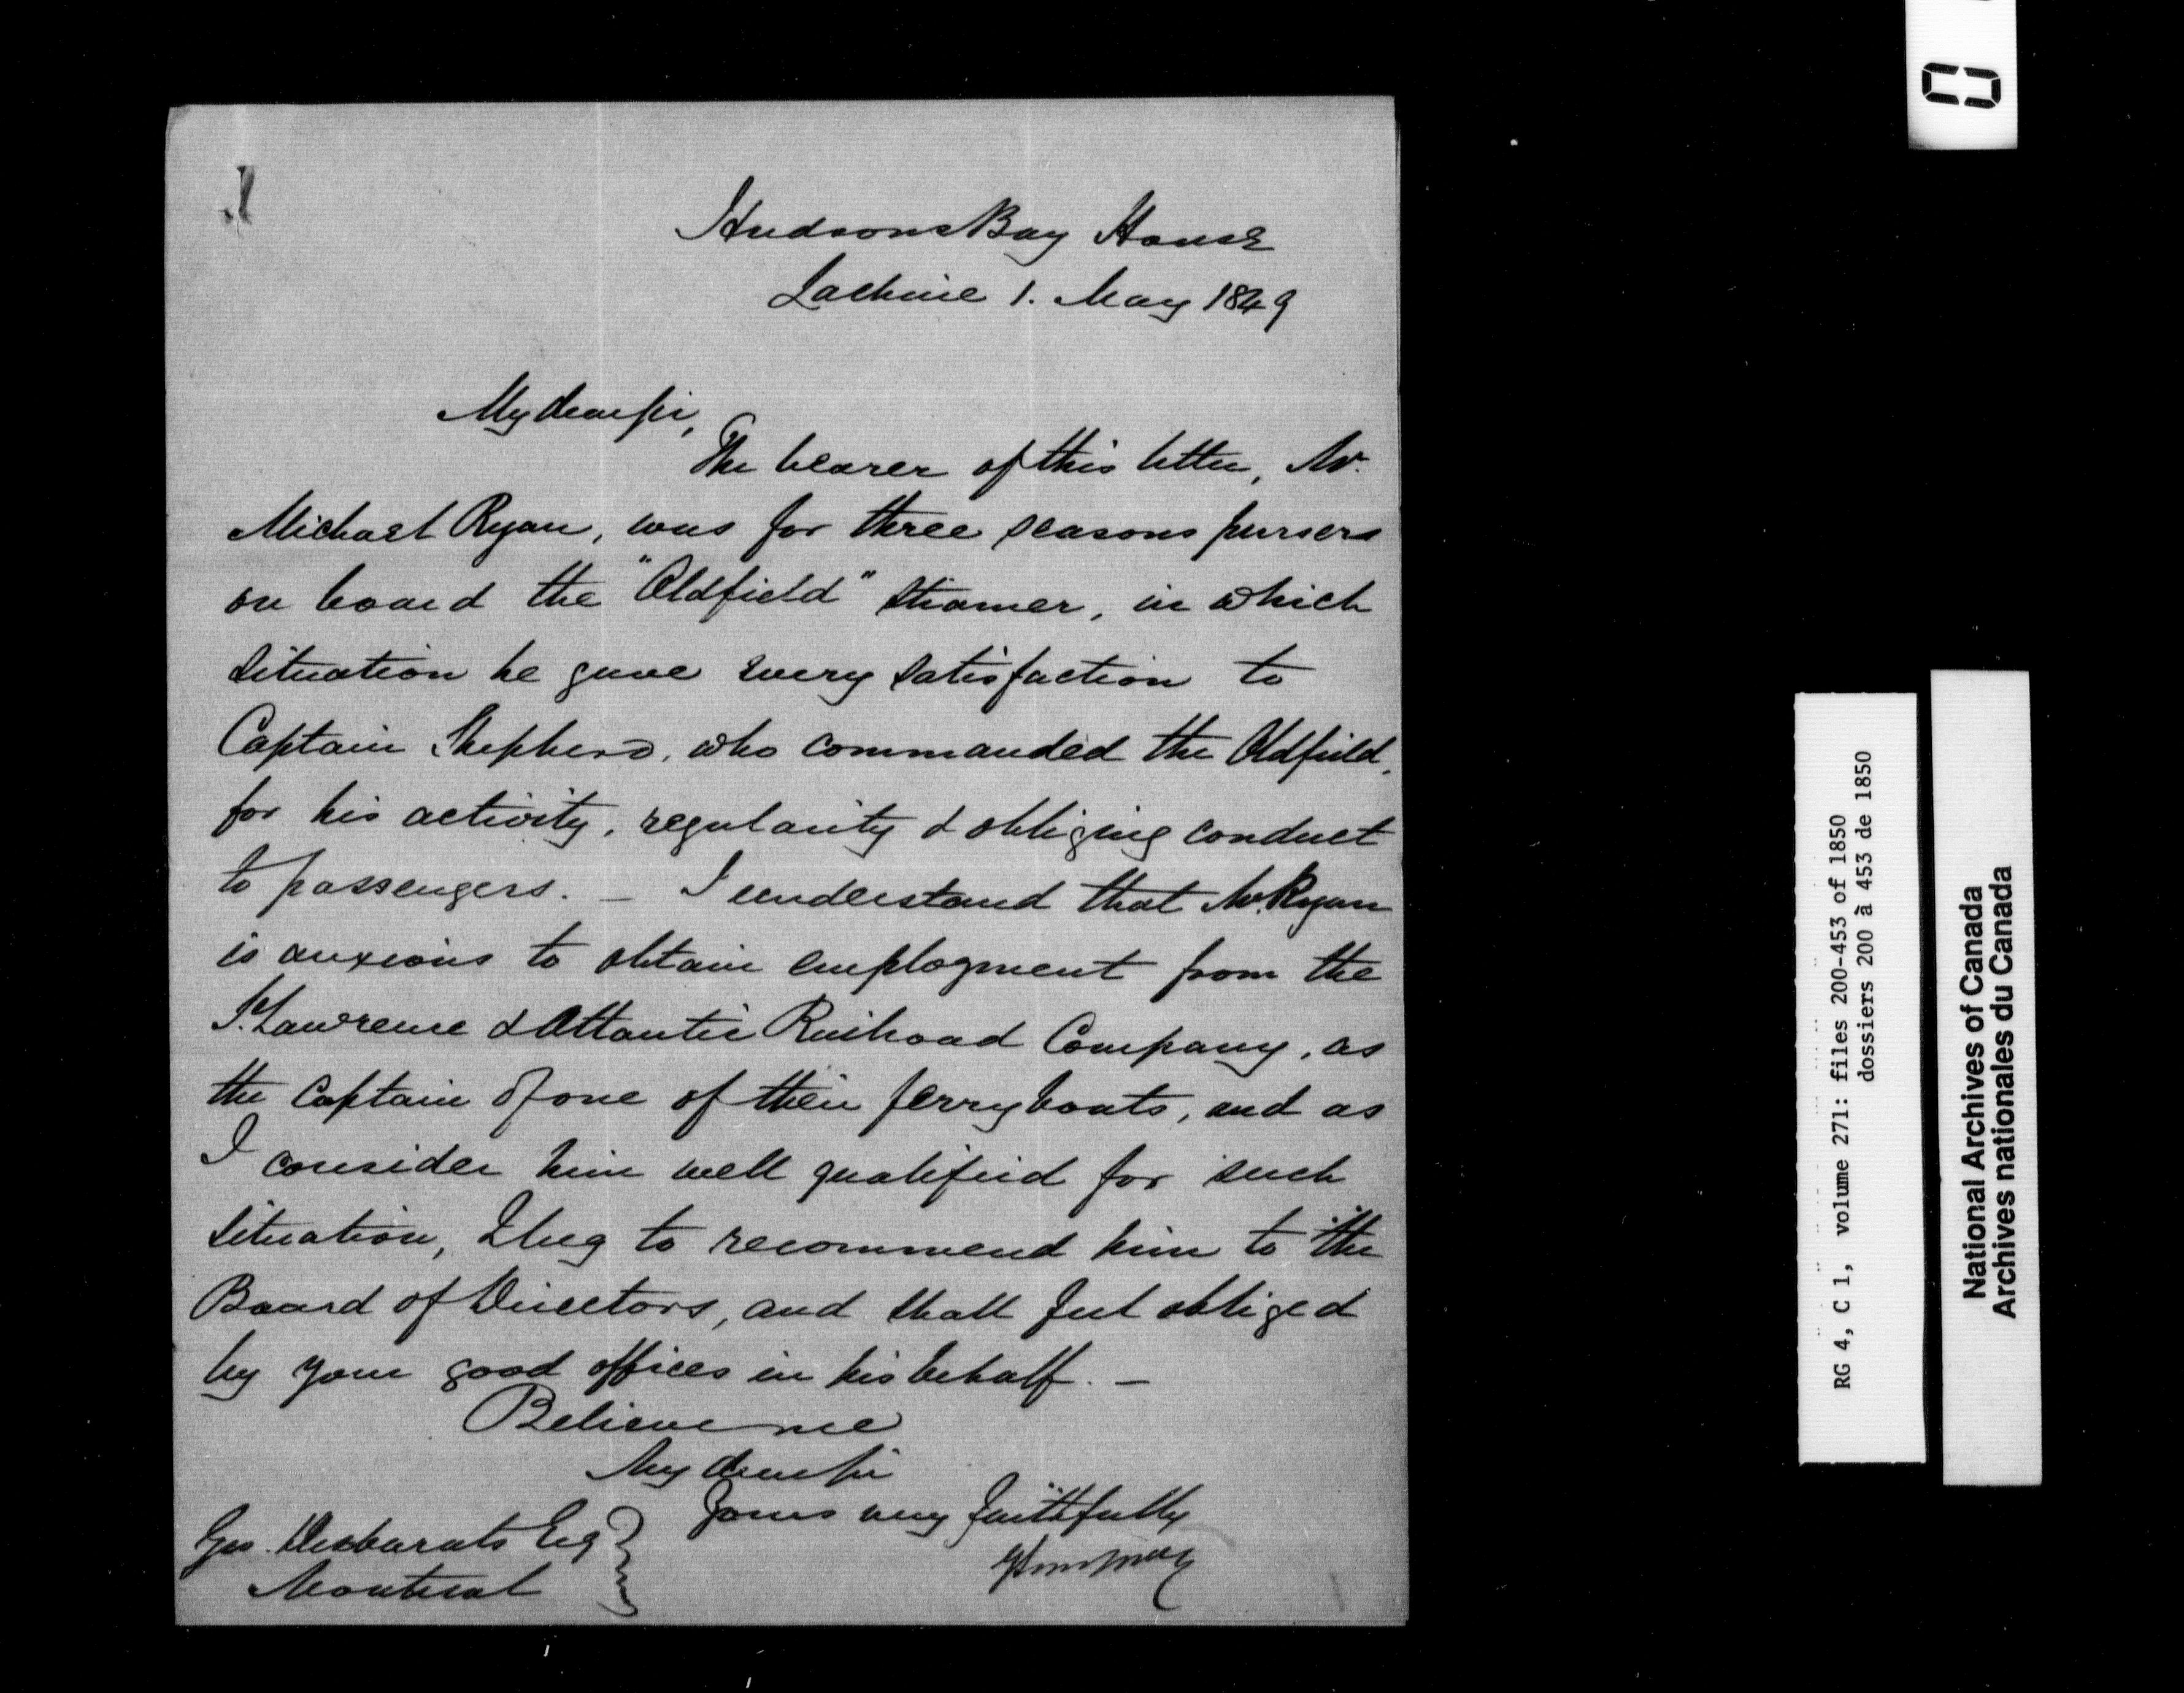 Hudsons Bay House
Lachine 1. May 1849
My dear Sir,
The bearer of this letter, Mr.
Michael Ryan, was for three seasons pursers
on board the "Oldfield" steamer, in which
situation he gave every satisfaction to
Captain Shepherd, who commanded the Oldfield,
for his activity, regularity & obliging conduct
to passengers. — I understand that Mr. Ryan
is anxious to obtain employment from the
St. Lawrence & Atlantic Railroad Company, as
the Captain of one of their ferry boats, and as
I consider him well qualified for such
situation, I beg to recommend him to the
Board of Directors, and shall feel obliged
by your good offices in his behalf. —
Believe me
My dear Sir
Yours very faithfully
Geo. Desbarats Esq
Montreal
RG 4, C 1, volume 271: files 200-453 of 1850
dossiers 200 à 453 de 1850
National Archives of Canada
Archives nationales du Canada